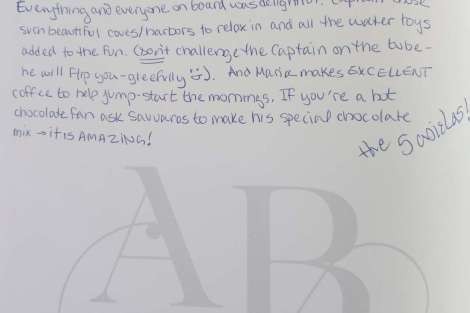 Everything and everyone on board was delightful. Captain chose
such beautiful coves/harbors to relax in and all the water toys
added to the fun. (Don't challenge the Captain on the tube -
he will flip you - gleefully ☺). And Maria makes EXCELLENT
coffee to help jump-start the mornings. If you're a hot
chocolate fan ask Savvaros to make his special chocolate
mix → it is AMAZING!
the 5
AB